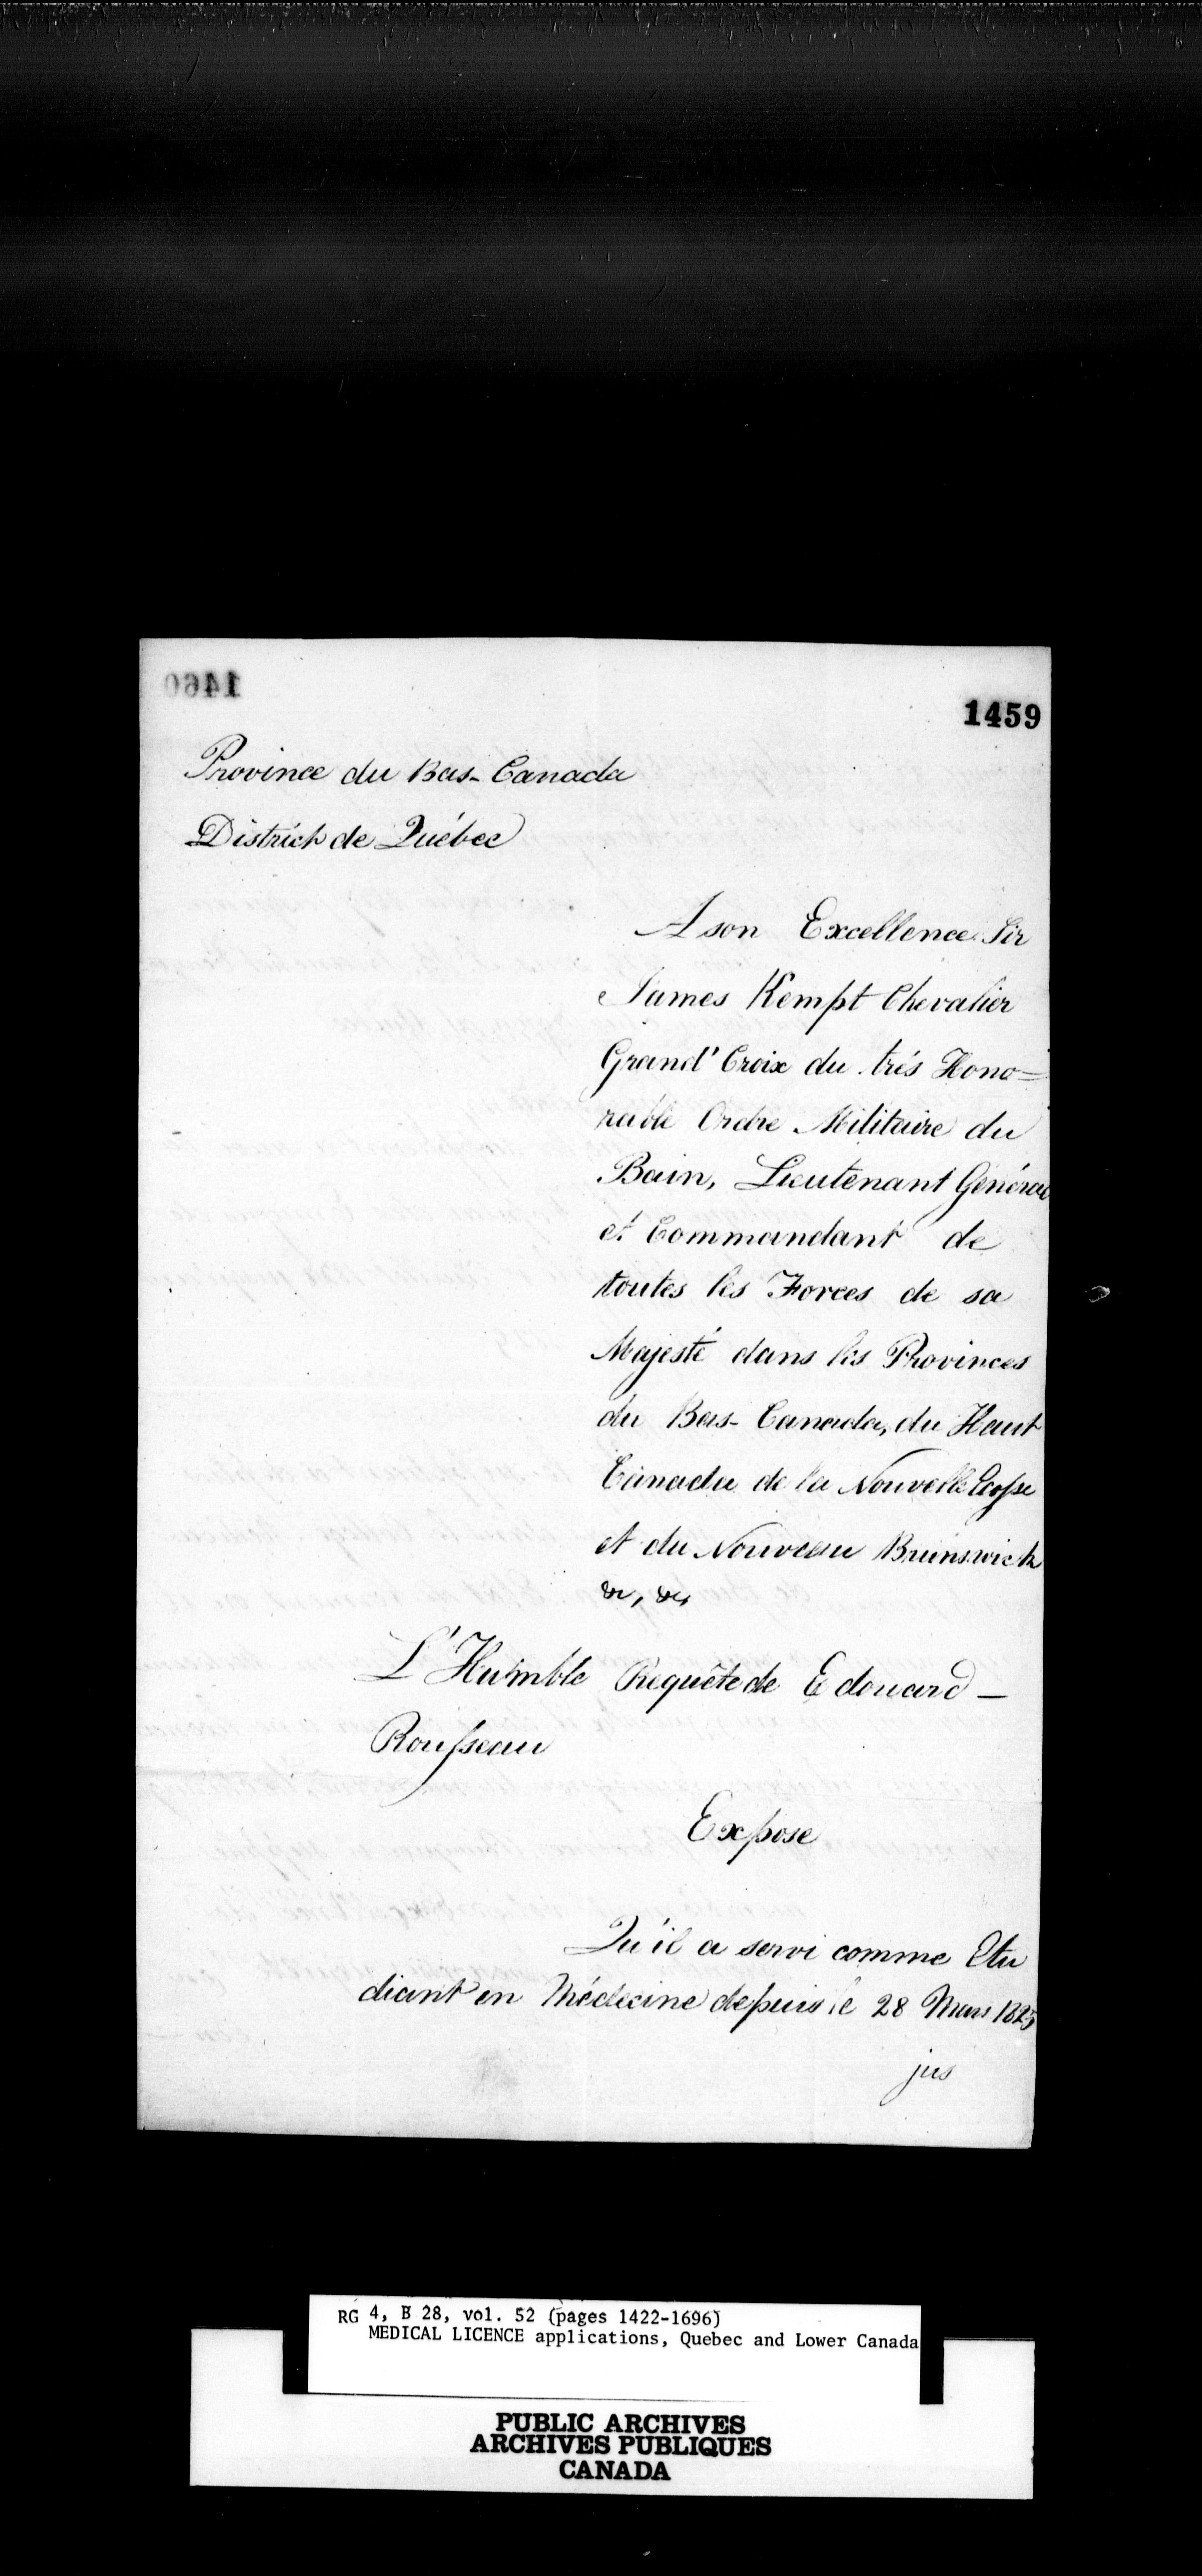 1460
1459
Province du Bas-Canada
District de Québec
A son Excellence Sir
James Kempt Chevalier
Grand' Croix du très Hono=
rable Ordre Militaire du
Bain, Lieutenant Général
et Commandant de
toutes les Forces de sa
Majesté dans les Provinces
du Bas-Canada, du Haut
Canada de la Nouvelle Ecosse
et du Nouveau Brunswick
&c, &c,
L'Humble Requête de Edouard –
Rousseau
Expose
Qu'il a servi comme Etu
diant en Médecine depuis le 28 Mars 1825
jus
RG 4, B 28, vol. 52 (pages 1422-1696)
MEDICAL LICENCE applications, Quebec and Lower Canada
PUBLIC ARCHIVES
ARCHIVES PUBLIQUES
CANADA